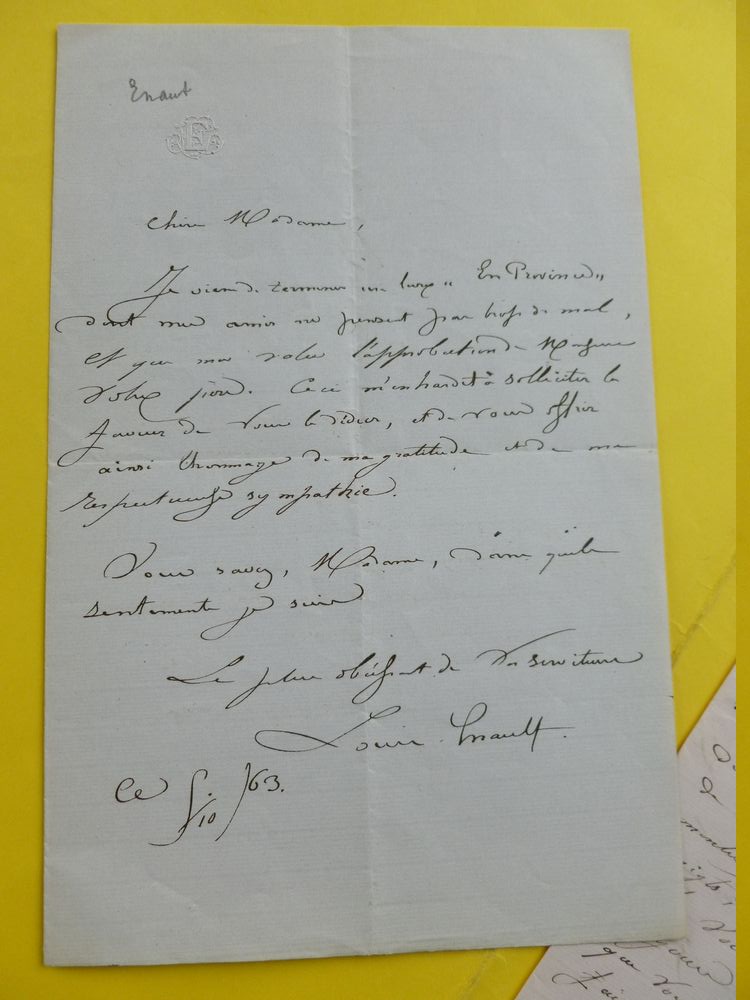 Enault
Chère Madame,
Je viens de terminer un livre „ En Province „
dont mes amis ne pensent pas trop de mal,
et qui m'a valu l'approbation de Monsieur
votre père. Ceci m'enhardit à solliciter la
faveur de vous le dédier, et de vous offrir
ainsi l'hommage de ma gratitude et de ma
respectueuse sympathie.
Vous savez, Madame, dans quels
sentiments je suis
Le plus obéissant de vos serviteurs
Louis Enault.
Ce 5/10/63.
que vo